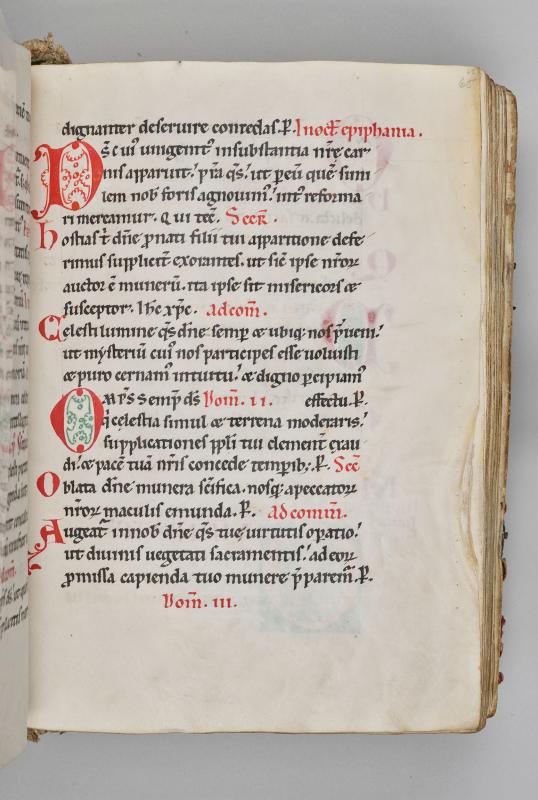 dignanter deseruire concedas. P. In oct̄ epiphania.
Ds̄ cui᷒ unigenit᷒ in substantia nr̄e car
nis apparuit.ʼ p̄ta qs̄.ʼ ut p eū quē simi
lem nob foris agnouim᷒.ʼ int᷒ reforma
ri mereamur. Qui tec̄. Secr̄.
hostias t̄ dn̄e p nati filii tui apparitione defe
rimus supplicit̄ exorantes. ut sic̄ ipse nr̄or
auctor ē munerū. ita ipse sit misericors &
susceptor. Ihc̄ xpc̄. ad com̄.
Celesti lumine qs̄ dn̄e semp & ubiq; nos p̄ueni.ʼ
ut mysteriū cui᷒ nos participes esse uoluisti
& puro cernam᷒ intuitu.ʼ & digno pcipiam᷒
Omp̄s semp̄ ds̄ Dom̄. ii. effectu. P.
q̄ celestia simul & terrena moderaris.ʼ
supplicationes ppl̄i tui clement̄ exau
di.ʼ & pacē tuā nr̄is concede temporib;. P. Sec̄
Oblata dn̄e munera sc̄ifica. nosq; a peccator
nr̄or maculis emunda. P. ad comm̄.
Augeat᷒ in nob dn̄e qs̄ tue uirtutis opatio.ʼ
ut diuinis uegetati sacramentis.ʼ ad eor
pmissa capienda tuo munere p̄parem᷒. P.
Dom̄. iii.